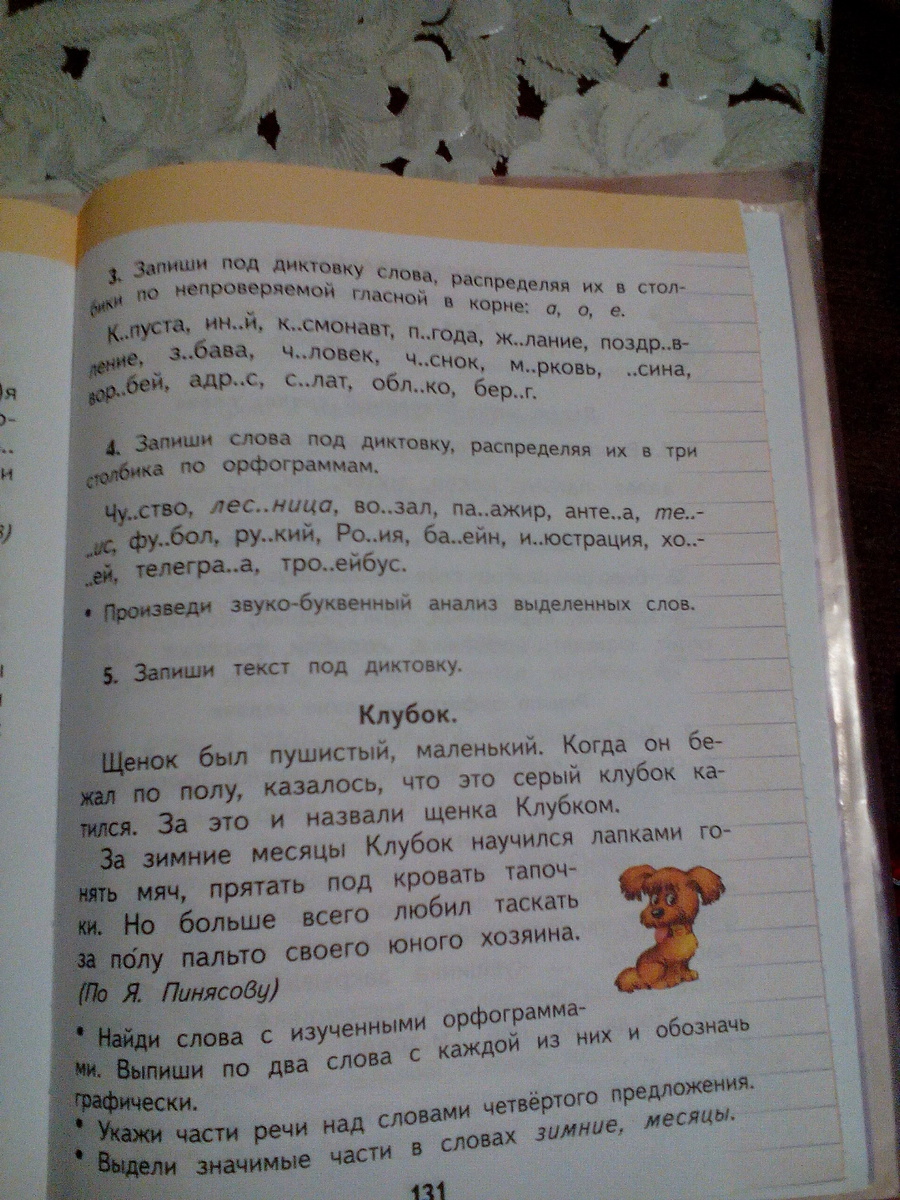 )я
о-
..
и
в)
ы
я
3. Запиши под диктовку слова, распределяя их в стол-
бики по непроверяемой гласной в корне: а, о, е.
К..пуста, ин..й, к..смонавт, п..года, ж..лание, поздр..в-
ление, з..бава, ч..ловек, ч..снок, м..рковь, ..сина,
вор..бей, адр..с, с..лат, обл..ко, бер..г.
4. Запиши слова под диктовку, распределяя их в три
столбика по орфограммам.
Чу..ство, лес..ница, во..зал, па..ажир, анте..а, те..-
..ис, фу..бол, ру..кий, Ро..ия, ба..ейн, и..юстрация, хо..-
..ей, телегра..а, тро..ейбус.
• Произведи звуко-буквенный анализ выделенных слов.
5. Запиши текст под диктовку.
Клубок.
Щенок был пушистый, маленький. Когда он бе-
жал по полу, казалось, что это серый клубок ка-
тился. За это и назвали щенка Клубком.
За зимние месяцы Клубок научился лапками го-
нять мяч, прятать под кровать тапоч-
ки. Но больше всего любил таскать
за по́лу пальто своего юного хозяина.
(По Я. Пинясову)
• Найди слова с изученными орфограмма-
ми. Выпиши по два слова с каждой из них и обозначь
графически.
• Укажи части речи над словами четвёртого предложения.
• Выдели значимые части в словах зимние, месяцы.
131